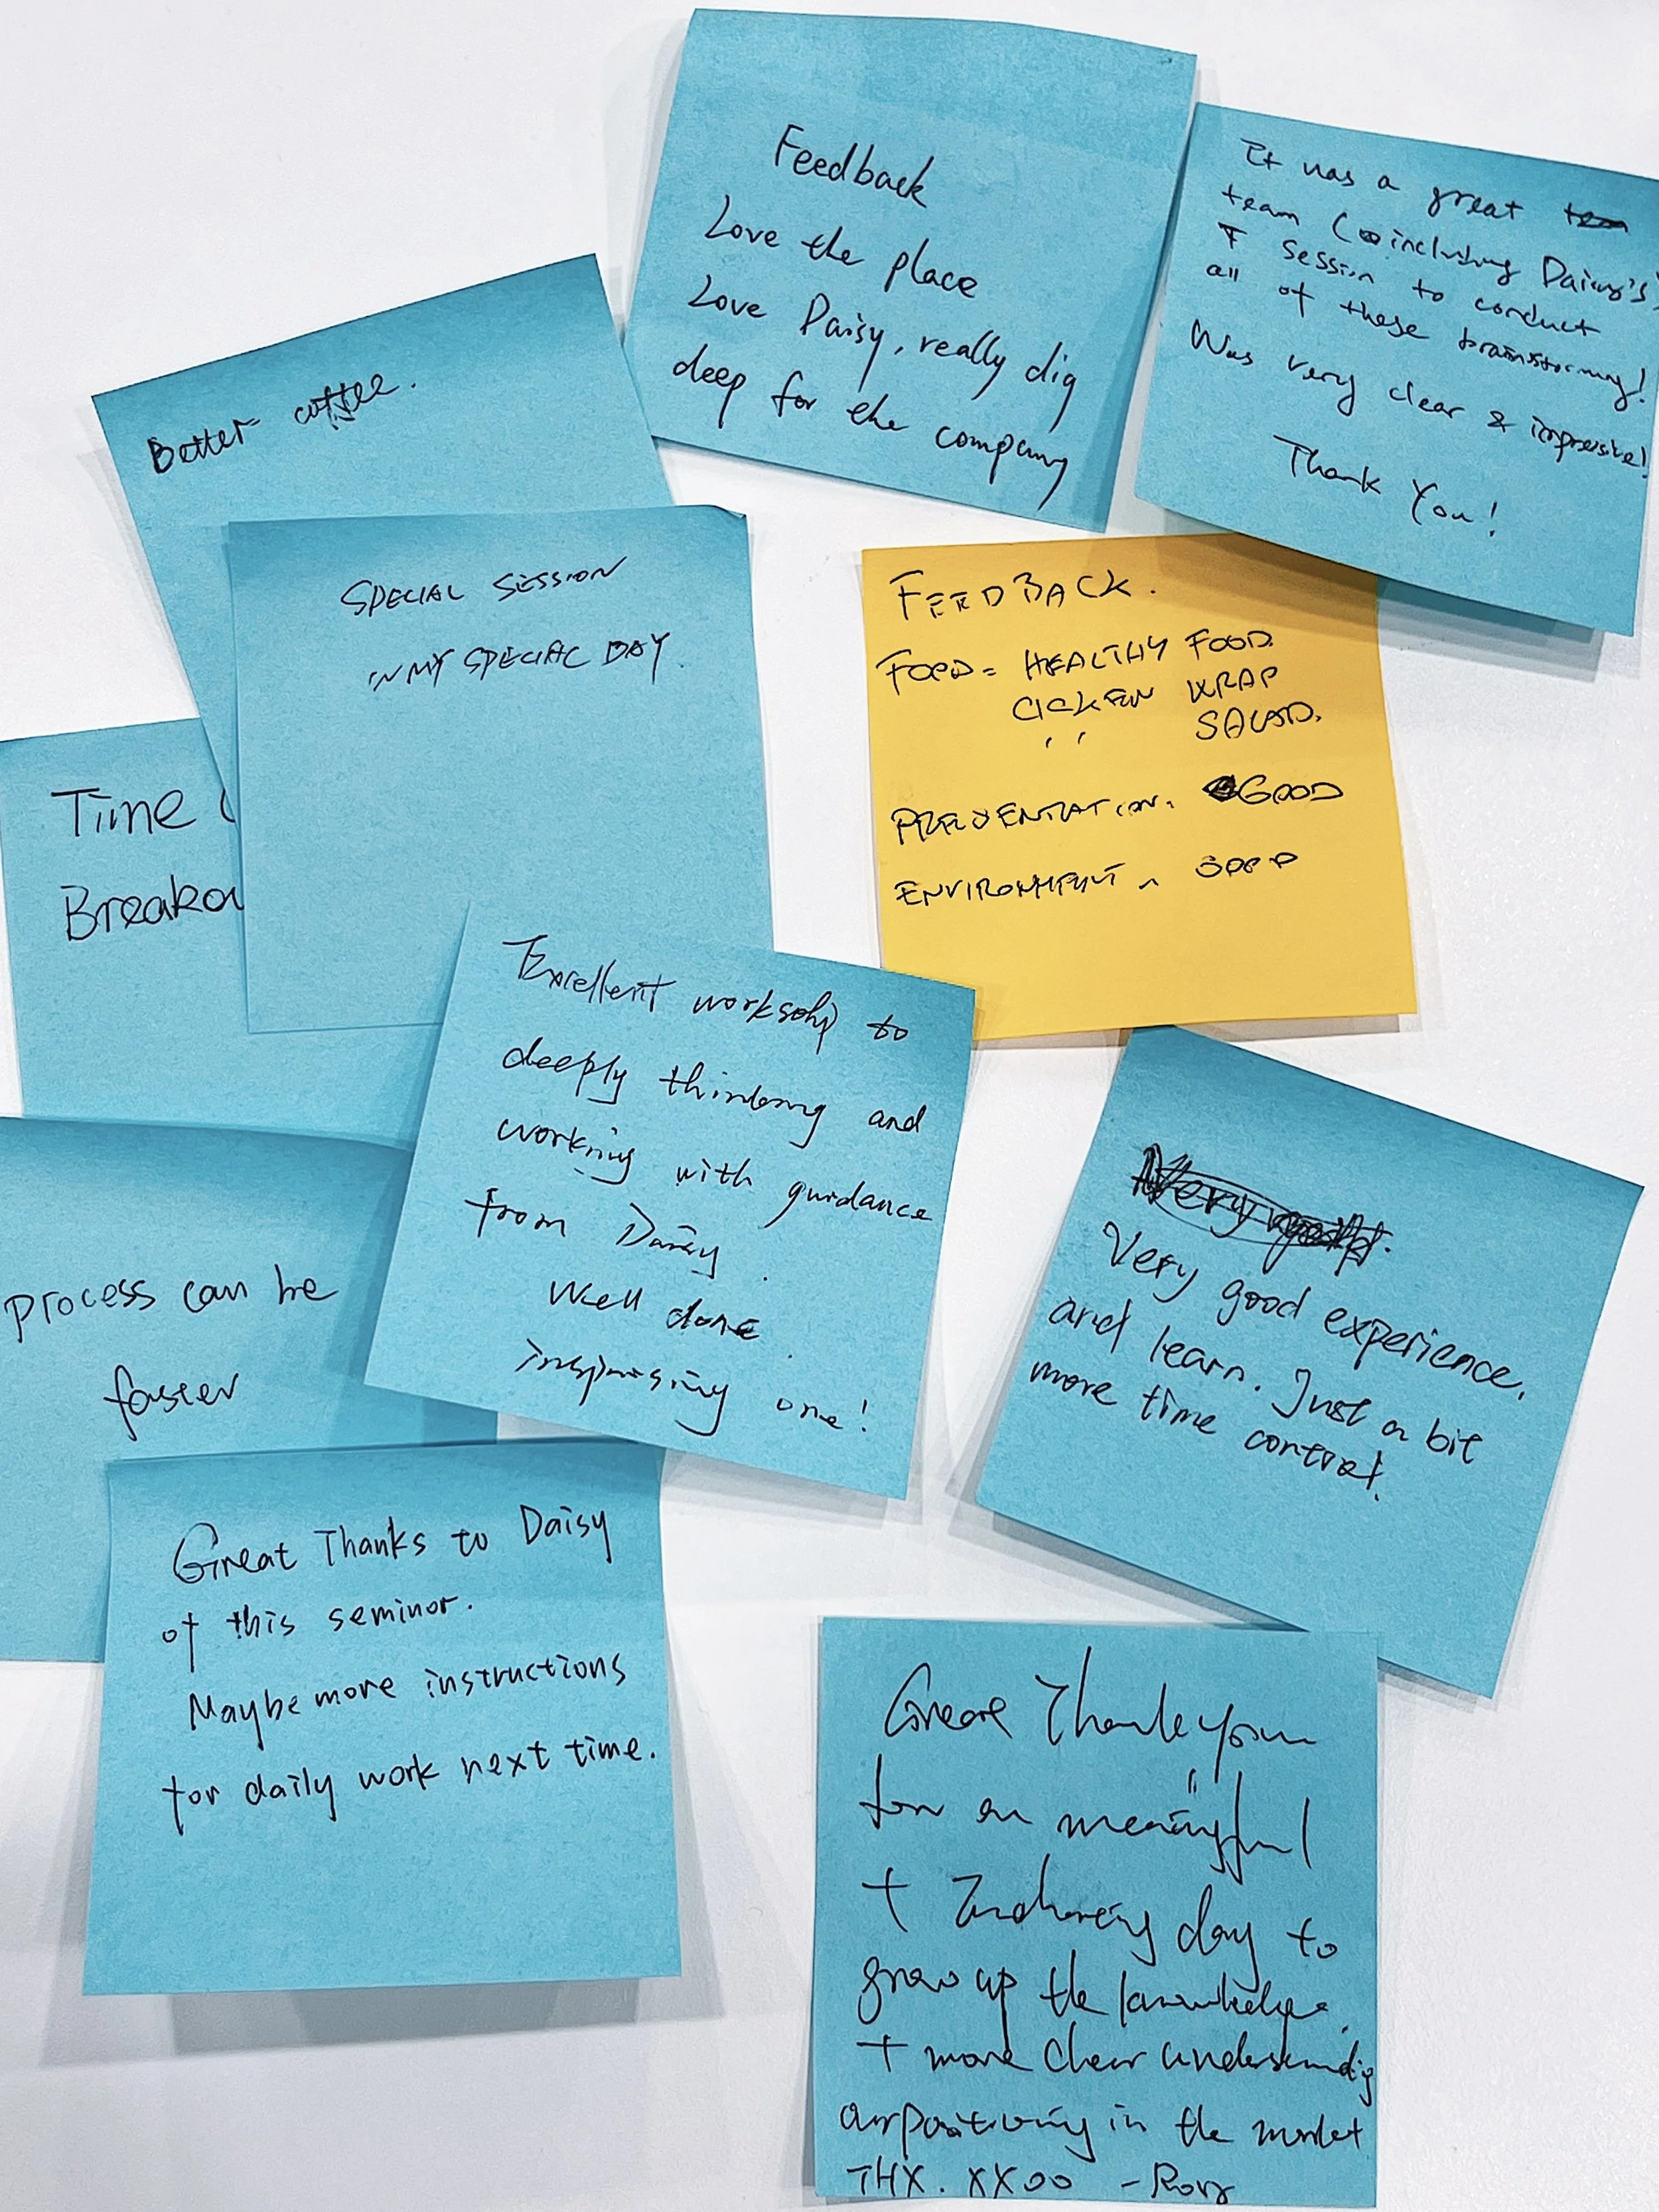 Feedback
Love the place
Love Daisy, really dig
deep for the company
It was a great
team (including Daisy's)
session to conduct
all of these brainstorming!
Was very clear & impressive!
Thank You!
Better coffee.
SPECIAL SESSION
IN MY SPECIAL DAY
FEEDBACK.
FOOD = HEALTHY FOOD
CICKEN WRAP
" SALAD.
PRESENTATION. GOOD
ENVIRONMENT - GOOD
Time
Breako
Excellent worksohp to
deeply thinking and
working with guidance
from Daisy.
Well done.
inspiring one!
Very good experience.
and learn. Just a bit
more time control.
process can be
faster
Great Thanks to Daisy
of this seminor.
Maybe more instructions
for daily work next time.
Great Thank you
for an meaningful
+ day to
grow up the knowledge.
+ more clear understanding
our positioning in the market
THX. XXOO